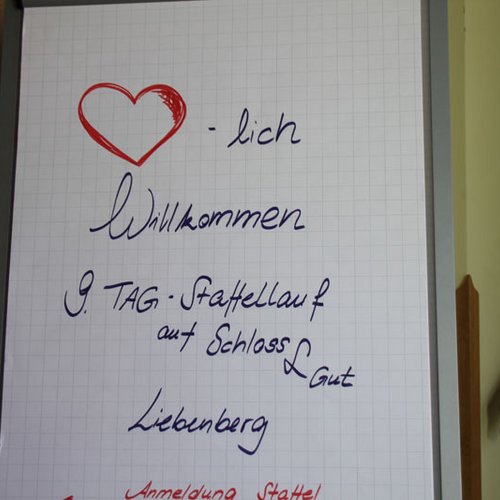 - lich
Willkommen
9. TAG - Staffellauf
auf Schloss &
Gut
Liebenberg
Anmeldung Staffel